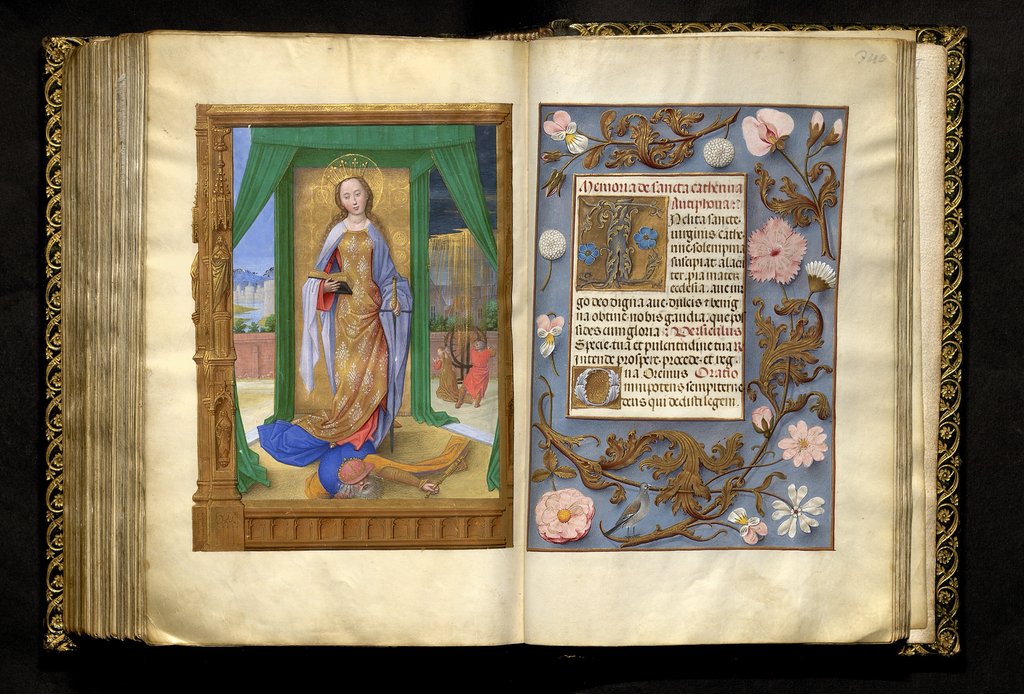 Memoria de sancta catherina
Antiphona:
INclita sancte
virginis cathe
rine solempnia
suscipiat alacri
ter. pia mater
ecclesia. aue vir
go deo digna aue dulcis & benig
na obtine nobis gaudia. que pos
sides cum gloria: Versiculus
Specie tua et pulcritudine tua R
Intende prospere procede. et reg
na Oremus Oratio
Omnipotens sempiterne
deus qui dedisti legem.